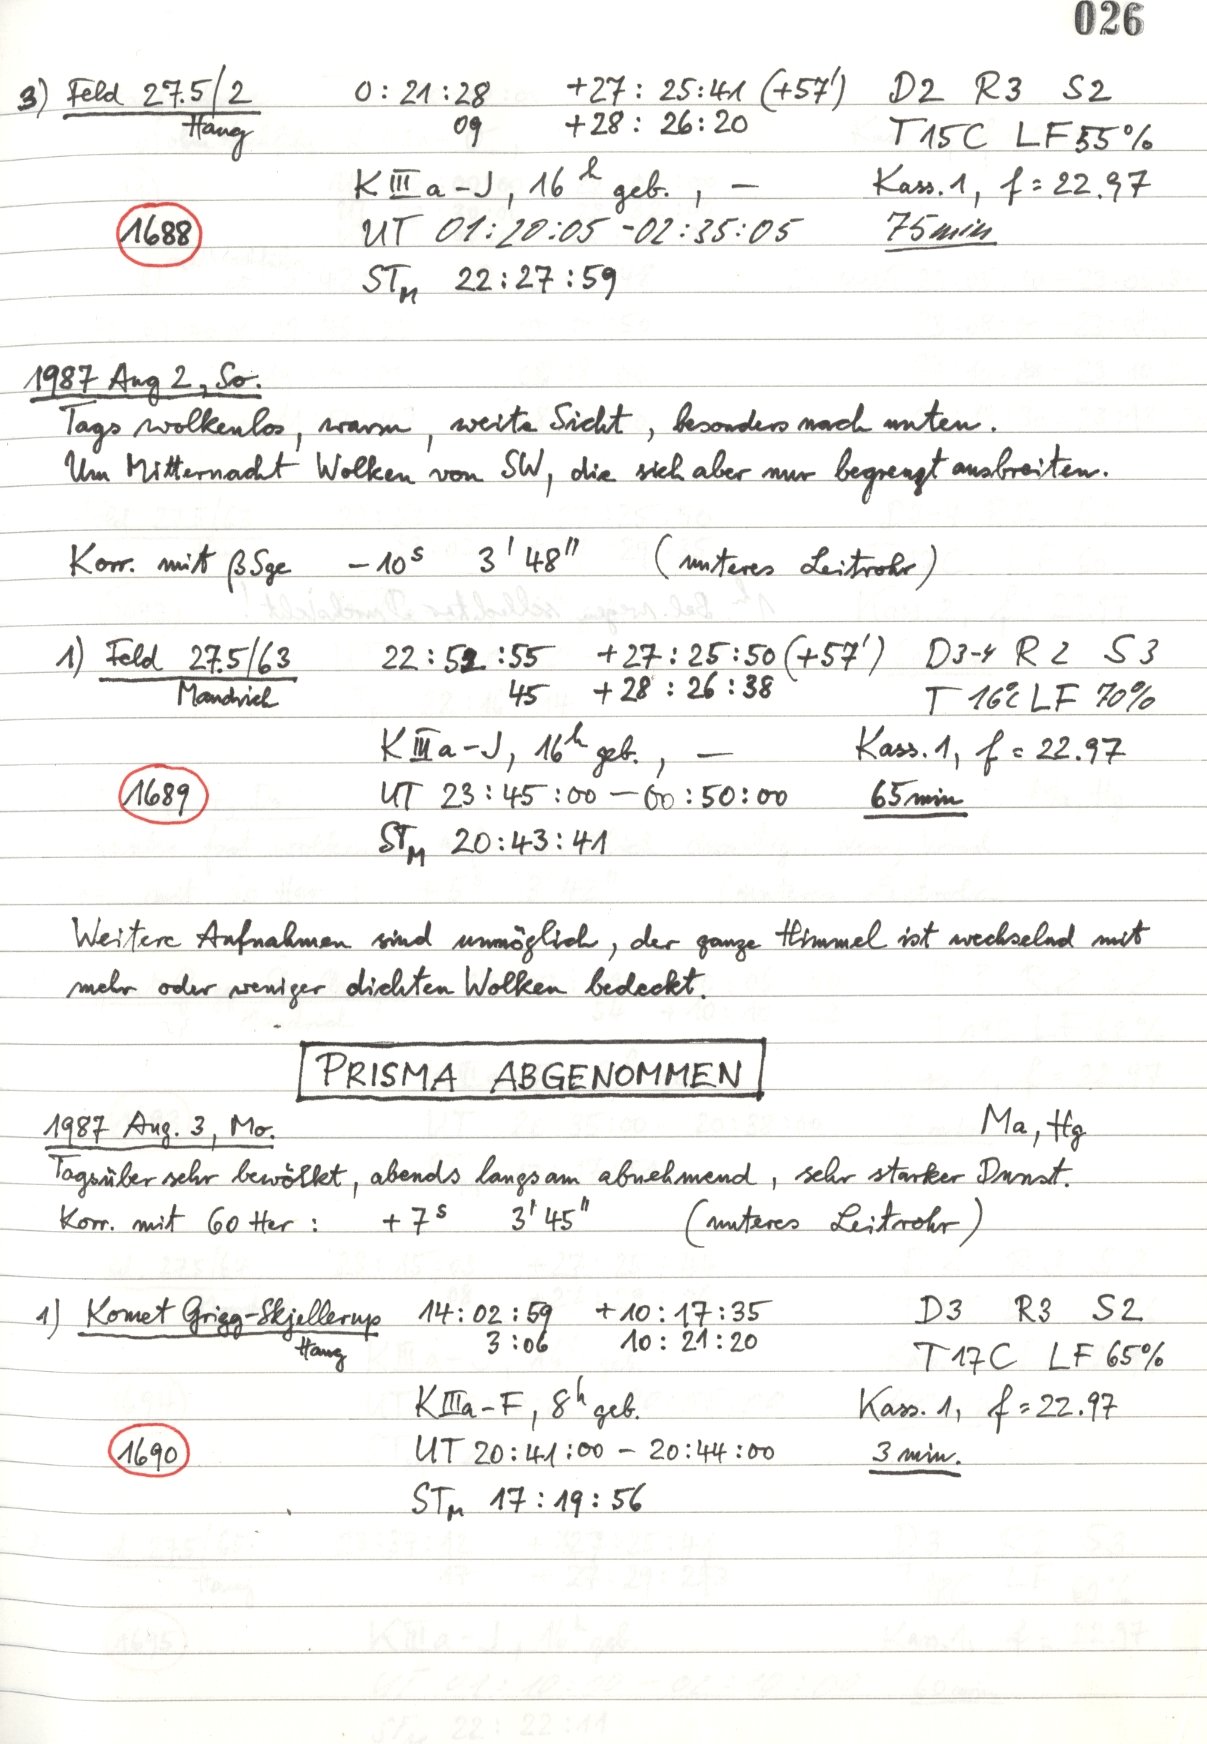 026
3) Feld 27.5/2 0:21:28 +27:25:41 (+57') D2 R3 S2
Haug 09 +28:26:20 T15C LF55%
KIIIa-J, 16h geb., — Kass.1, f=22.97
1688 UT 01:20:05-02:35:05 75min
STM 22:27:59
1987 Aug 2, So.
Tags wolkenlos, warm, weite Sicht, besonders nach unten.
Um Mitternacht Wolken von SW, die sich aber nur begrenzt ausbreiten.
Korr. mit βSge -10s 3'48" (unteres Leitrohr)
1) Feld 27.5/63 22:52:55 +27:25:50 (+57') D3-4 R2 S3
Mandrich 45 +28:26:38 T 16°C LF 70%
KIIIa-J, 16h geb., — Kass.1, f=22.97
1689 UT 23:45:00-00:50:00 65min
STM 20:43:41
Weitere Aufnahmen sind unmöglich, der ganze Himmel ist wechselnd mit
mehr oder weniger dichten Wolken bedeckt.
PRISMA ABGENOMMEN
1987 Aug. 3, Mo. Ma, Hg
Tagsüber sehr bewölkt, abends langsam abnehmend, sehr starker Dunst.
Korr. mit 60 Her: +7s 3'45" (unteres Leitrohr)
1) Komet Grigg-Skjellerup 14:02:59 +10:17:35 D3 R3 S2
Haug 3:06 10:21:20 T17C LF 65%
KIIIa-F, 8h geb. Kass.1, f=22.97
1690 UT 20:41:00-20:44:00 3 min.
STM 17:19:56